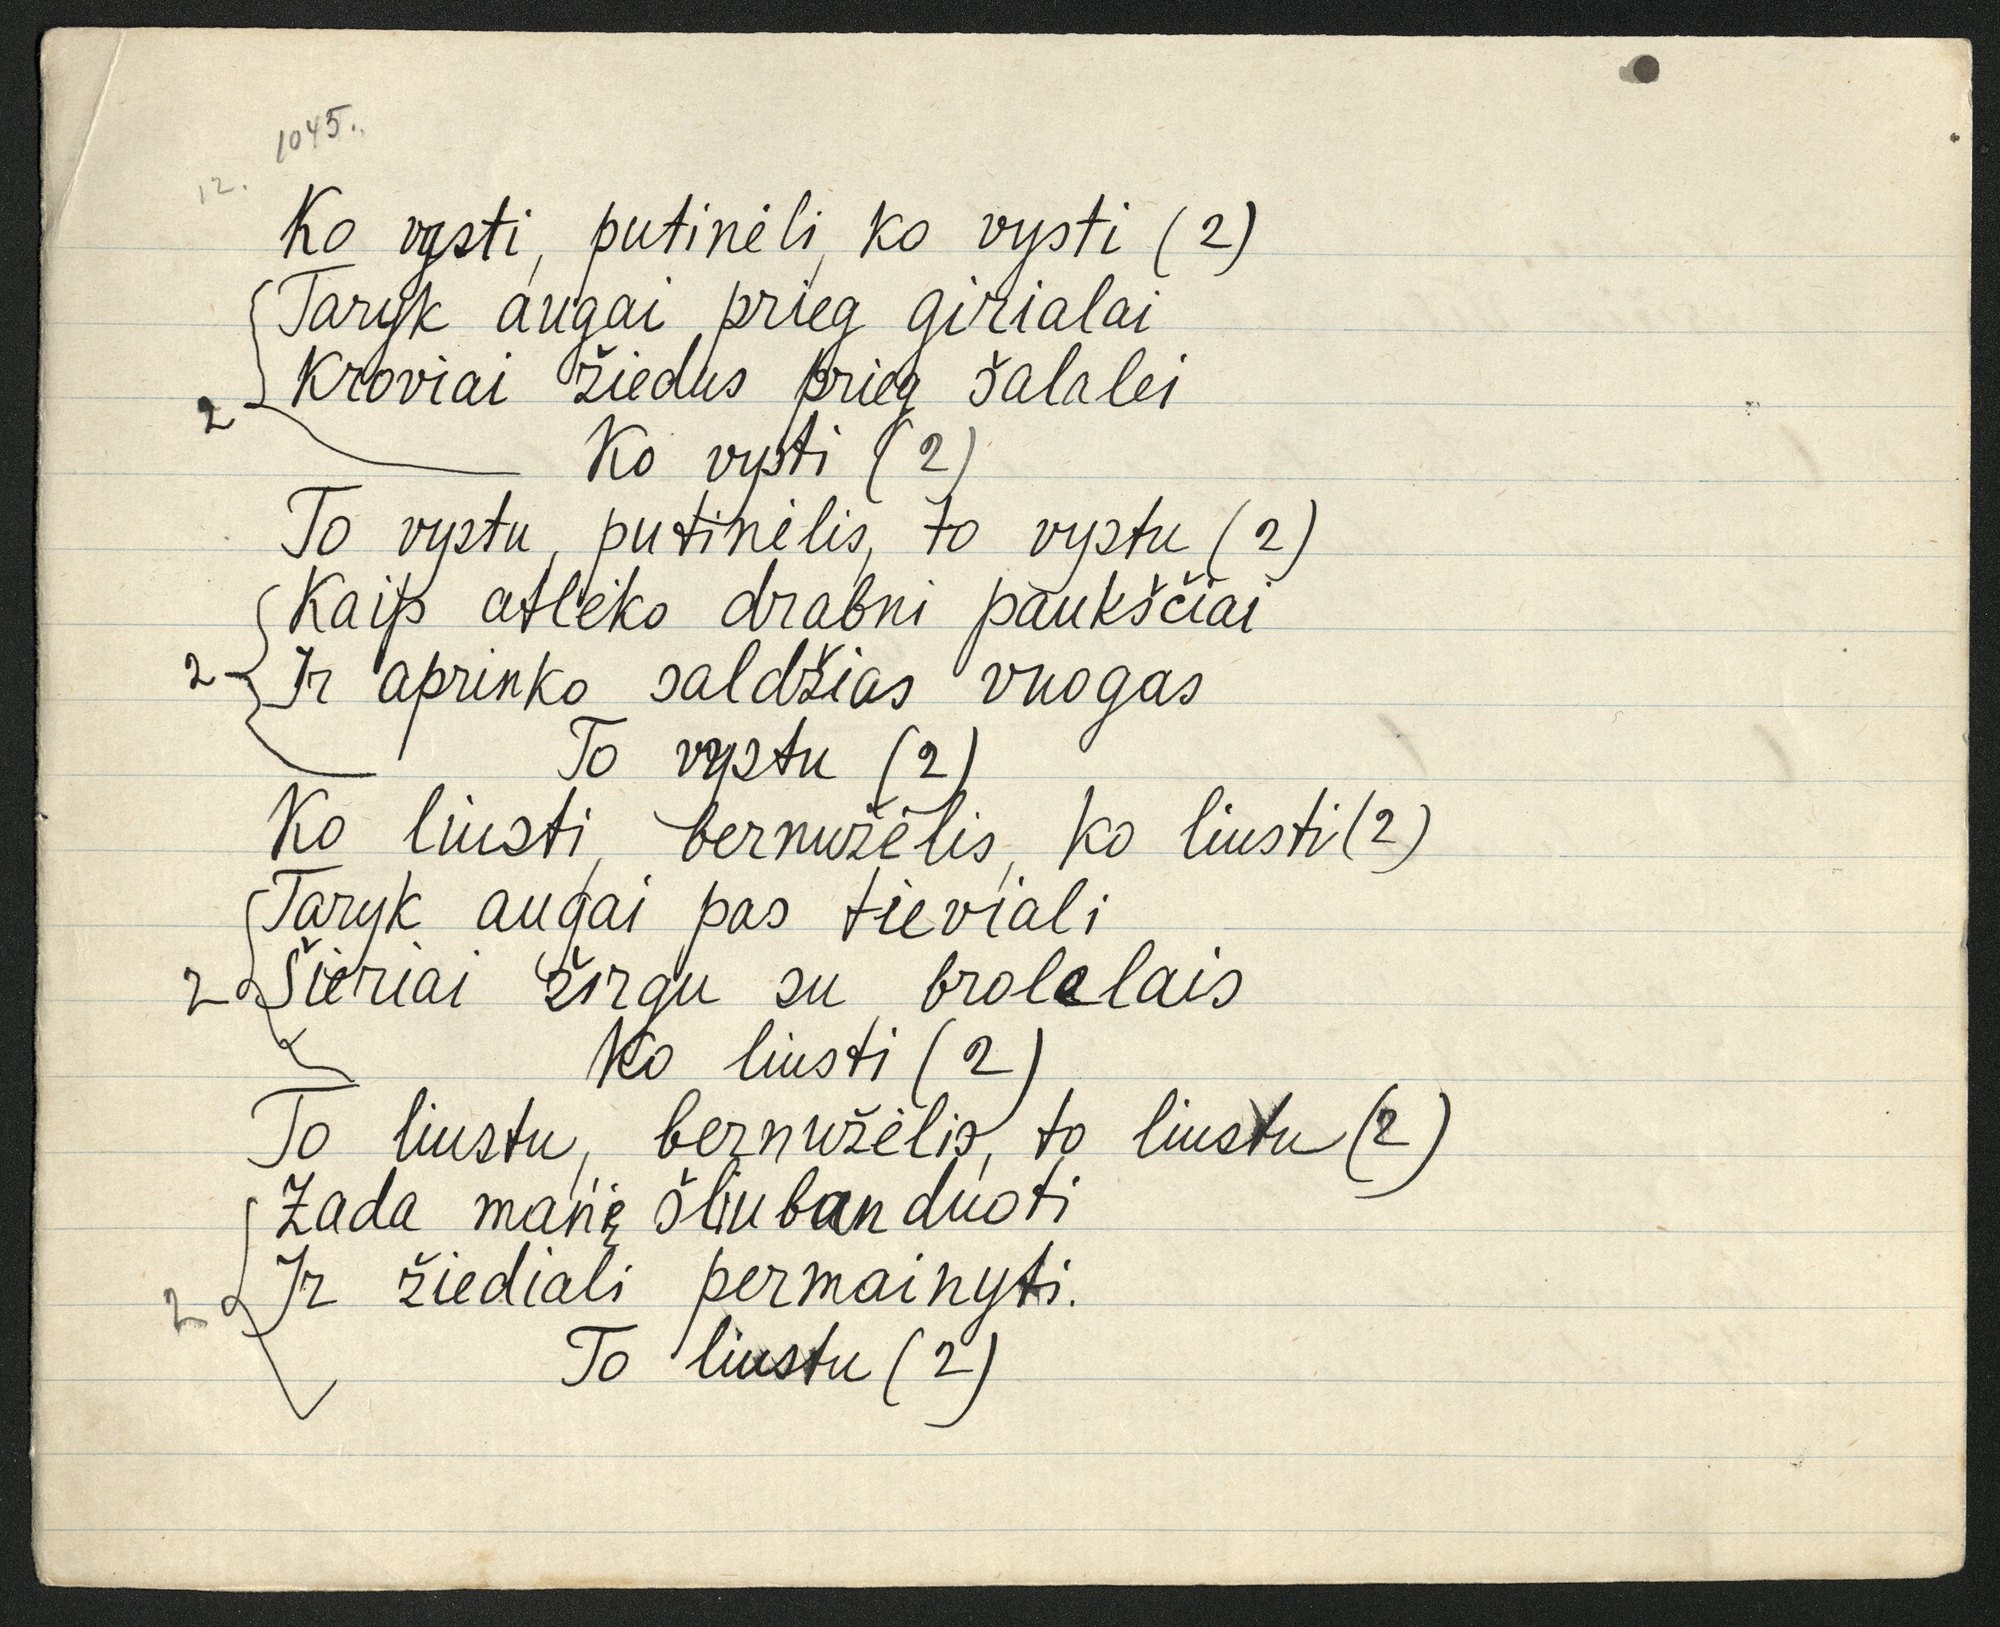 1045.
12.
Ko vysti, putinėli, ko vysti (2)
Taryk augai prieg girialai
Kroviai žiedus prieg šalalei
2
Ko vysti (2)
To vystu, putinėlis, to vystu (2)
Kaip atlėko drabni paukščiai
2 Ir aprinko saldžias vuogas
To vystu (2)
Ko liusti, bernužėlis, ko liusti (2)
Taryk augai pas tieviali
2 Šieriai žirgu su brolelais
Ko liusti (2)
To liustu, bernužėlis, to liustu (2)
Zada manię šliuban duoti
2 Ir žiediali permainyti.
To liustu (2)